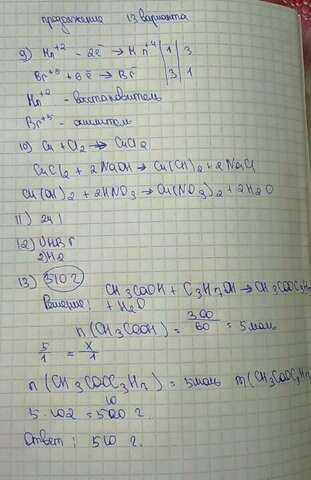 продолжение 13 варианта
9) Mn⁺² - 2ē → Mn⁺⁴ | 1 | 3
Br⁺⁵ + 6ē → Br⁻ | 3 | 1
Mn⁺² - восстановитель
Br⁺⁵ - окислитель
10) Cu + Cl₂ → CuCl₂
CuCl₂ + 2NaOH → Cu(OH)₂ + 2NaCl
Cu(OH)₂ + 2HNO₃ → Cu(NO₃)₂ + 2H₂O
11) 241
12)
2H₂
13) 510 г
CH₃COOH + C₃H₇OH → CH₃COOC₃H₇
Решение: + H₂O
n(CH₃COOH) = 300/60 = 5 моль
5/1 = x/1
n(CH₃COOC₃H₇) = 5 моль m(CH₃COOC₃H₇
5 · 102 = 510 г.
Ответ: 510 г.